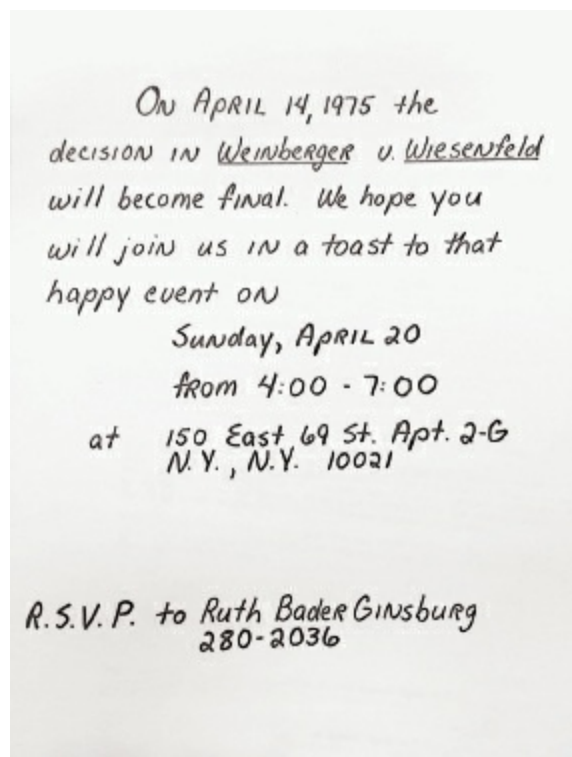 On April 14, 1975 the
decision in Weinberger v. Wiesenfeld
will become final. We hope you
will join us in a toast to that
happy event on
Sunday, April 20
from 4:00 - 7:00
at 150 East 69 St. Apt. 2-G
N.Y., N.Y. 10021
R.S.V.P. to Ruth Bader Ginsburg
280-2036